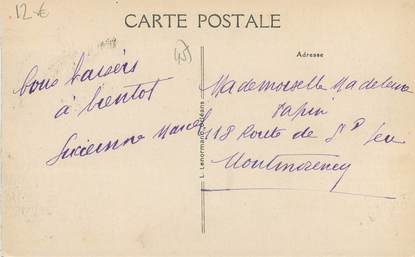 12 €
CARTE POSTALE
45
Adresse
bons baisers
à bientot
Lucienne Marcel
L. Lenormand, Orléans
Mademoiselle Madeleine
Papin
118 Route de St Leu
Montmorency